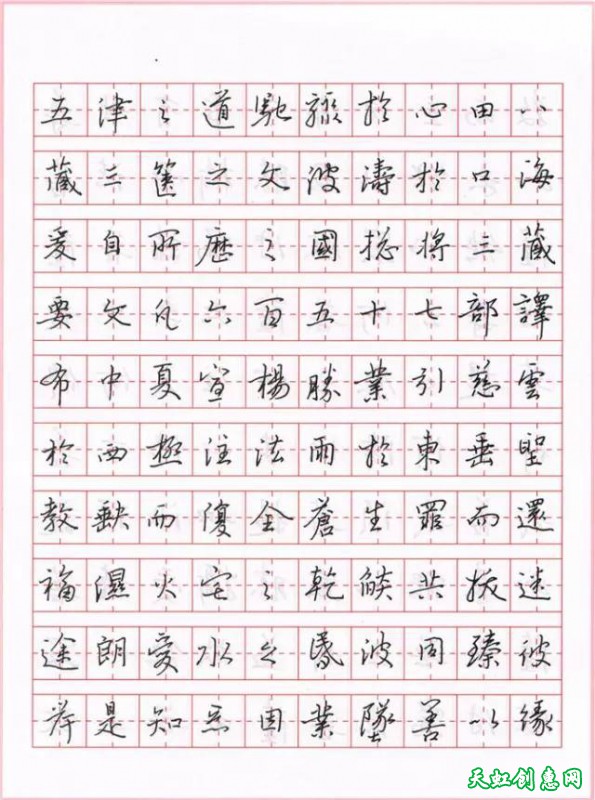 五津之道馳驟於心田八
藏三篋之文波濤於口海
爰自所歷之國捴將三藏
要文凡六百五十七部譯
布中夏宣楊勝業引慈雲
於西極注法雨於東垂聖
教缺而復全蒼生罪而還
福濕火宅之乾焰共拔迷
途朗愛水之昏波同臻彼
岸是知惡因業墜善以緣
天虹创意网